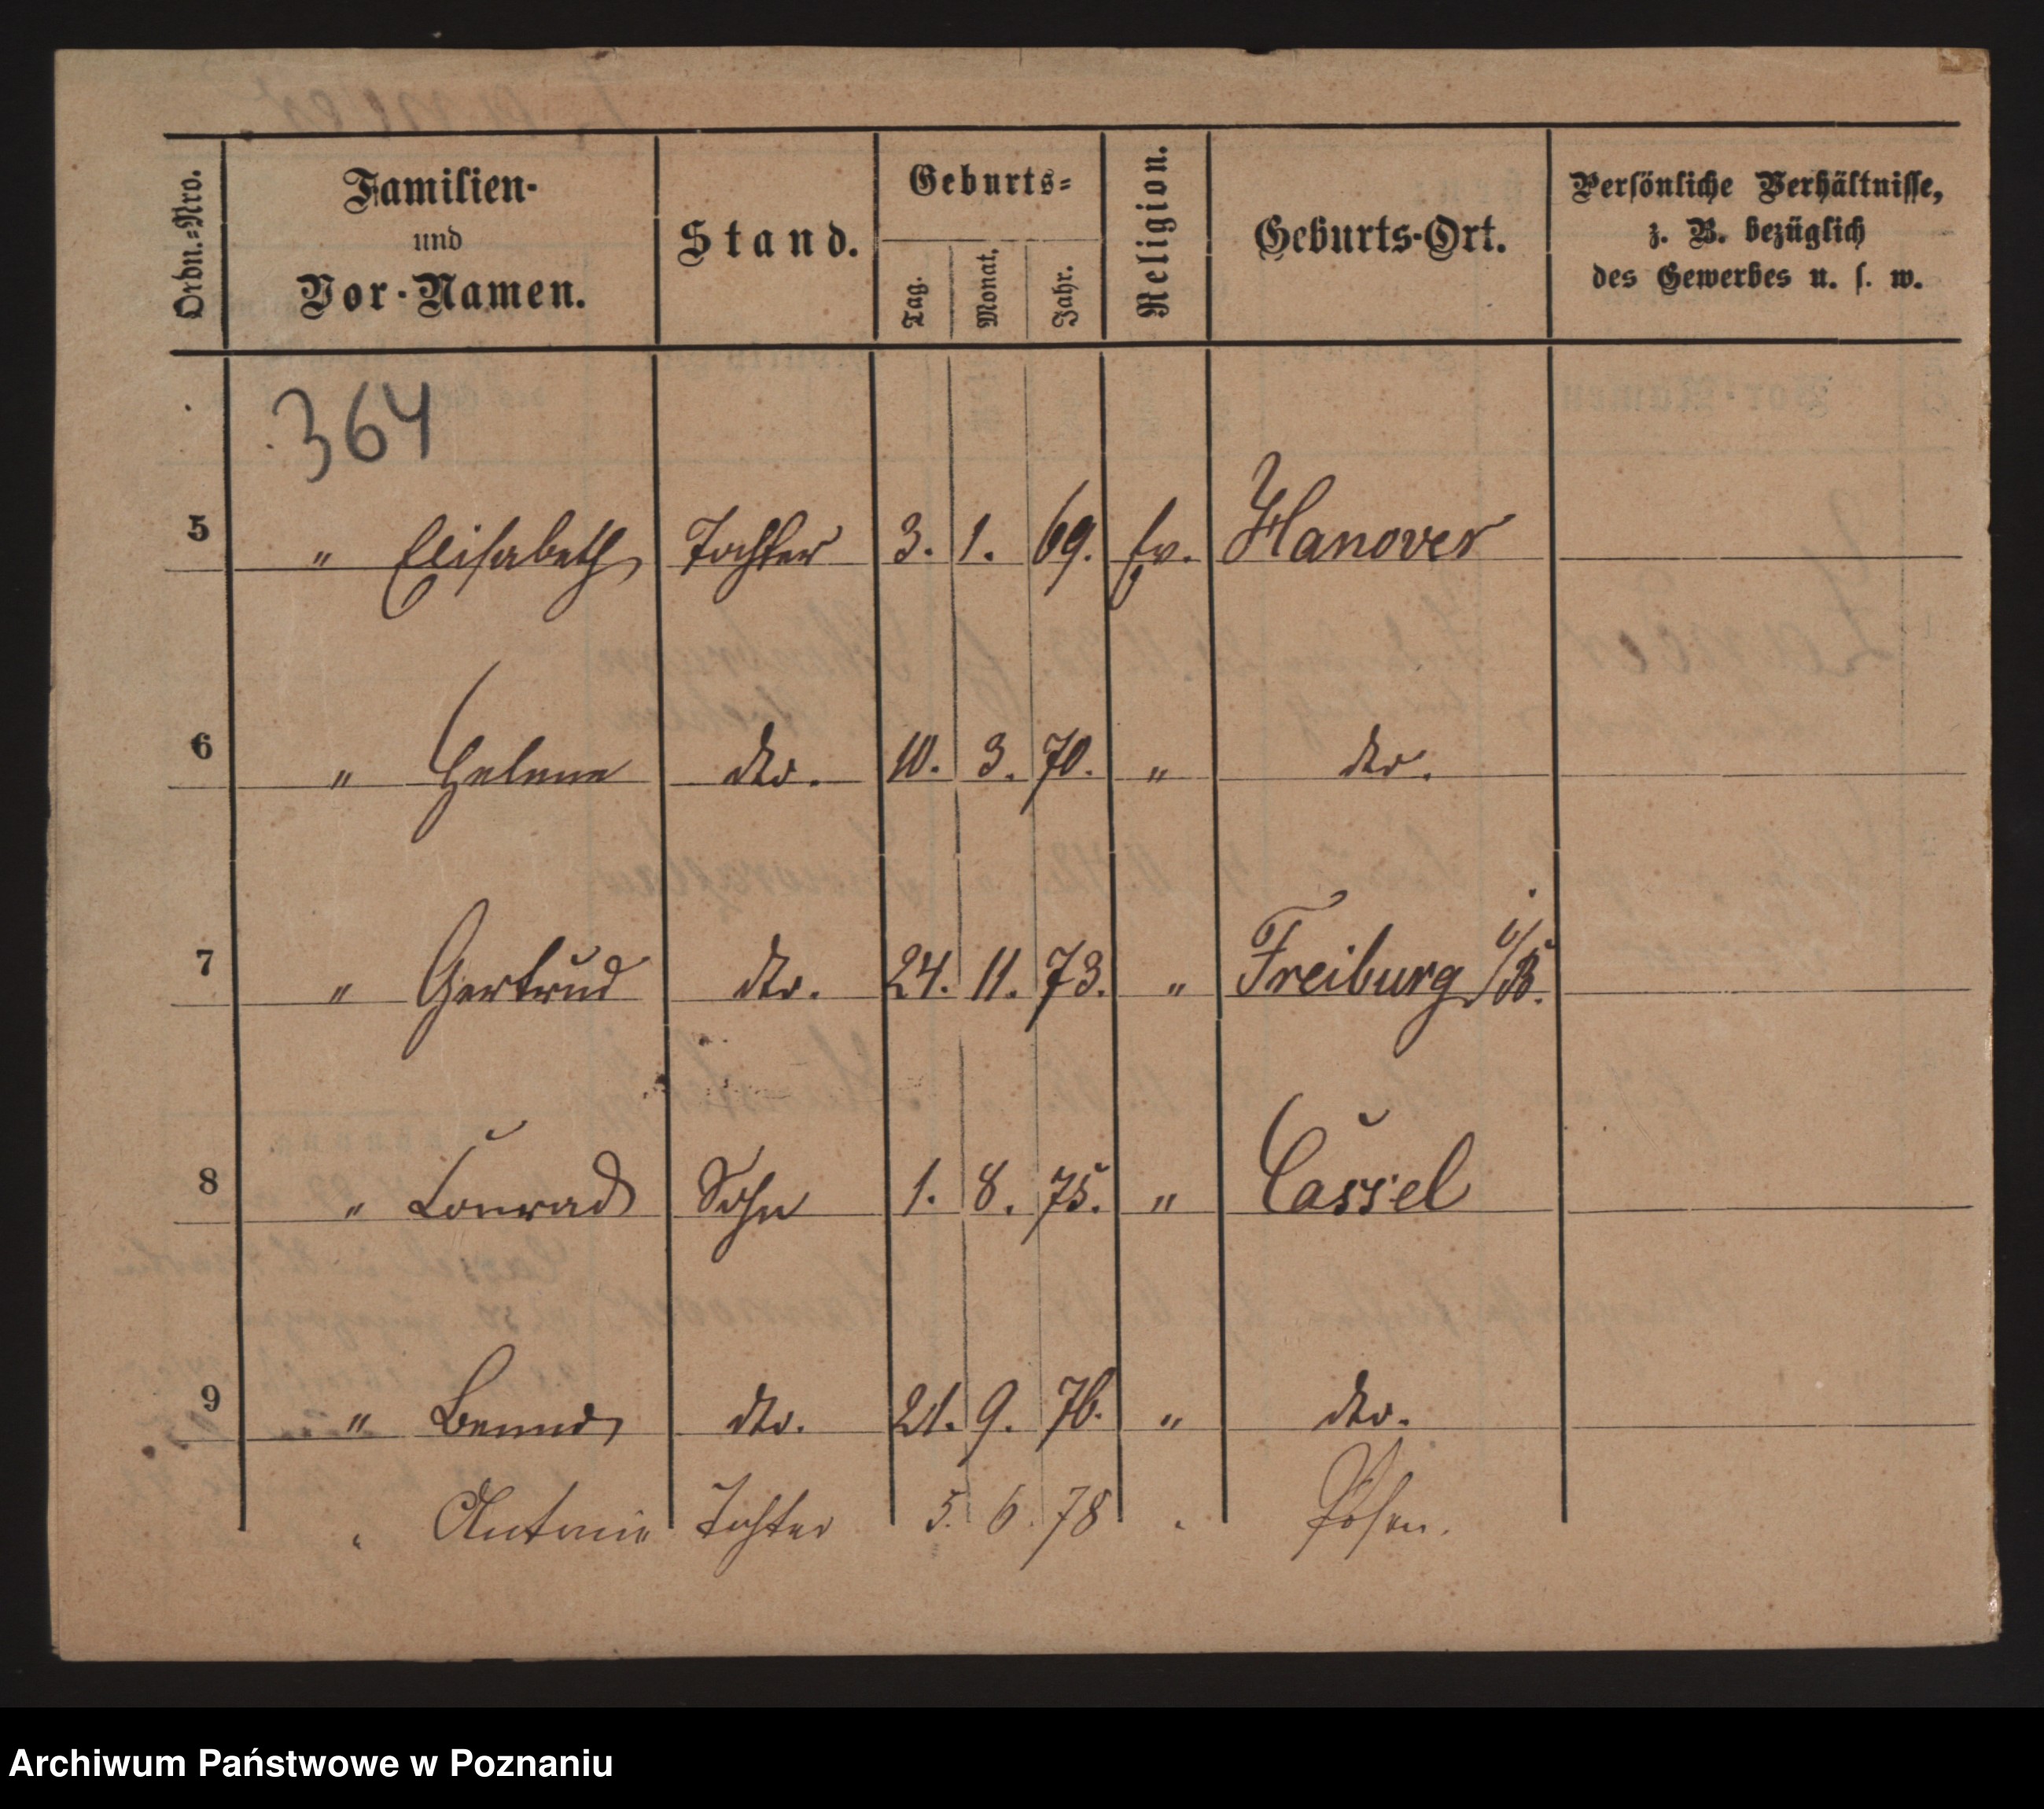 Ordn.=Nro.
Familien-
und
Vor-Namen.
Stand.
Geburts=
Tag.
Monat.
Jahr.
Religion.
Geburts-Ort.
Persönliche Verhältnisse,
z. B. bezüglich
des Gewerbes u. s. w.
364
5 " Elisabeth Tochter 3. 1. 69. ev. Hanover
6 " Helene dto. 10. 3. 70. " dto.
7 " Gertrud dto. 24. 11. 73. " Freiburg i/B.
8 " Conrad Sohn 1. 8. 75. " Cassel
9 " Benno dto. 21. 9. 76. " dto.
" Antonie Tochter 5. 6. 78 " Posen.
Archiwum Państwowe w Poznaniu